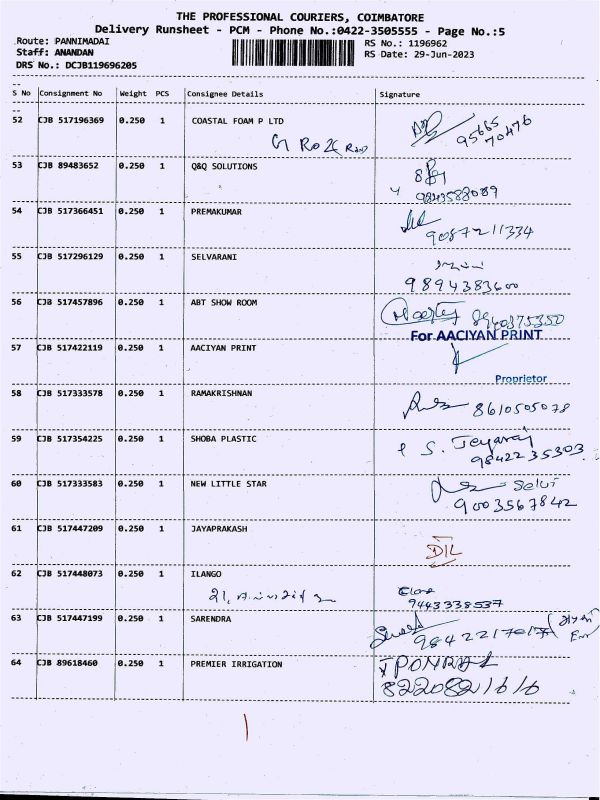 THE PROFESSIONAL COURIERS, COIMBATORE
Delivery Runsheet - PCM - Phone No.:0422-3505555 - Page No.:5
Route: PANNIMADAI
Staff: ANANDAN
DRS No.: DCJB119696205
RS No.: 1196962
RS Date: 29-Jun-2023
S No Consignment No Weight PCS Consignee Details Signature
52 CJB 517196369 0.250 1 COASTAL FOAM P LTD 95665
70476
53 CJB 89483652 0.250 1 Q&Q SOLUTIONS
9843588089
54 CJB 517366451 0.250 1 PREMAKUMAR
9087211334
55 CJB 517296129 0.250 1 SELVARANI
9894383600
56 CJB 517457896 0.250 1 ABT SHOW ROOM
8940375350
For AACIYAN PRINT
57 CJB 517422119 0.250 1 AACIYAN PRINT
Proprietor
58 CJB 517333578 0.250 1 RAMAKRISHNAN
8610505078
59 CJB 517354225 0.250 1 SHOBA PLASTIC S. Jeyaraj
9842235303
60 CJB 517333583 0.250 1 NEW LITTLE STAR Selvi
9003567842
61 CJB 517447209 0.250 1 JAYAPRAKASH
D/L
62 CJB 517448073 0.250 1 ILANGO
21,
9443338537
63 CJB 517447199 0.250 1 SARENDRA
9842217017
64 CJB 89618460 0.250 1 PREMIER IRRIGATION PONRAJ
8220821616